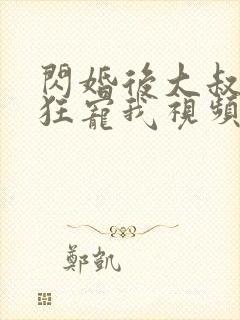 閃婚後大叔
狂寵我視頻
鄭凱